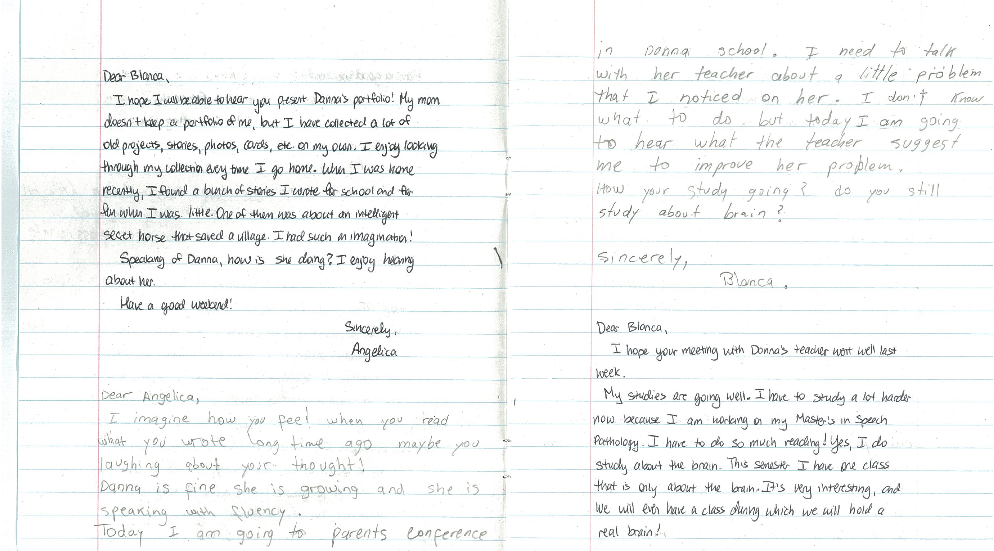 Dear Blanca,
I hope I will be able to hear you present Danna's portfolio! My mom
doesn't keep a portfolio of me, but I have collected a lot of
old projects, stories, photos, cards, etc. on my own. I enjoy looking
through my collection every time I go home. When I was home
recently, I found a bunch of stories I wrote for school and for
fun when I was little. One of them was about an intelligent
secret horse that saved a village. I had such an imagination!
Speaking of Danna, how is she doing? I enjoy hearing
about her.
Have a good weekend!
Sincerely,
Angelica
Dear Angelica,
I imagine how you feel when you read
what you wrote long time ago maybe you
laughing about your thought!
Danna is fine she is growing and she is
speaking with fluency.
Today I am going to parents conference
in Danna school. I need to talk
with her teacher about a little problem
that I noticed on her. I don't know
what to do but today I am going
to hear what the teacher suggest
me to improve her problem.
How your study going? do you still
study about brain?
Sincerely,
Blanca.
Dear Blanca,
I hope your meeting with Danna's teacher went well last
week.
My studies are going well. I have to study a lot harder
now because I am working on my Master's in Speech
Pathology. I have to do so much reading! Yes, I do
study about the brain. This semester I have one class
that is only about the brain. It's very interesting, and
we will even have a class during which we will hold a
real brain!